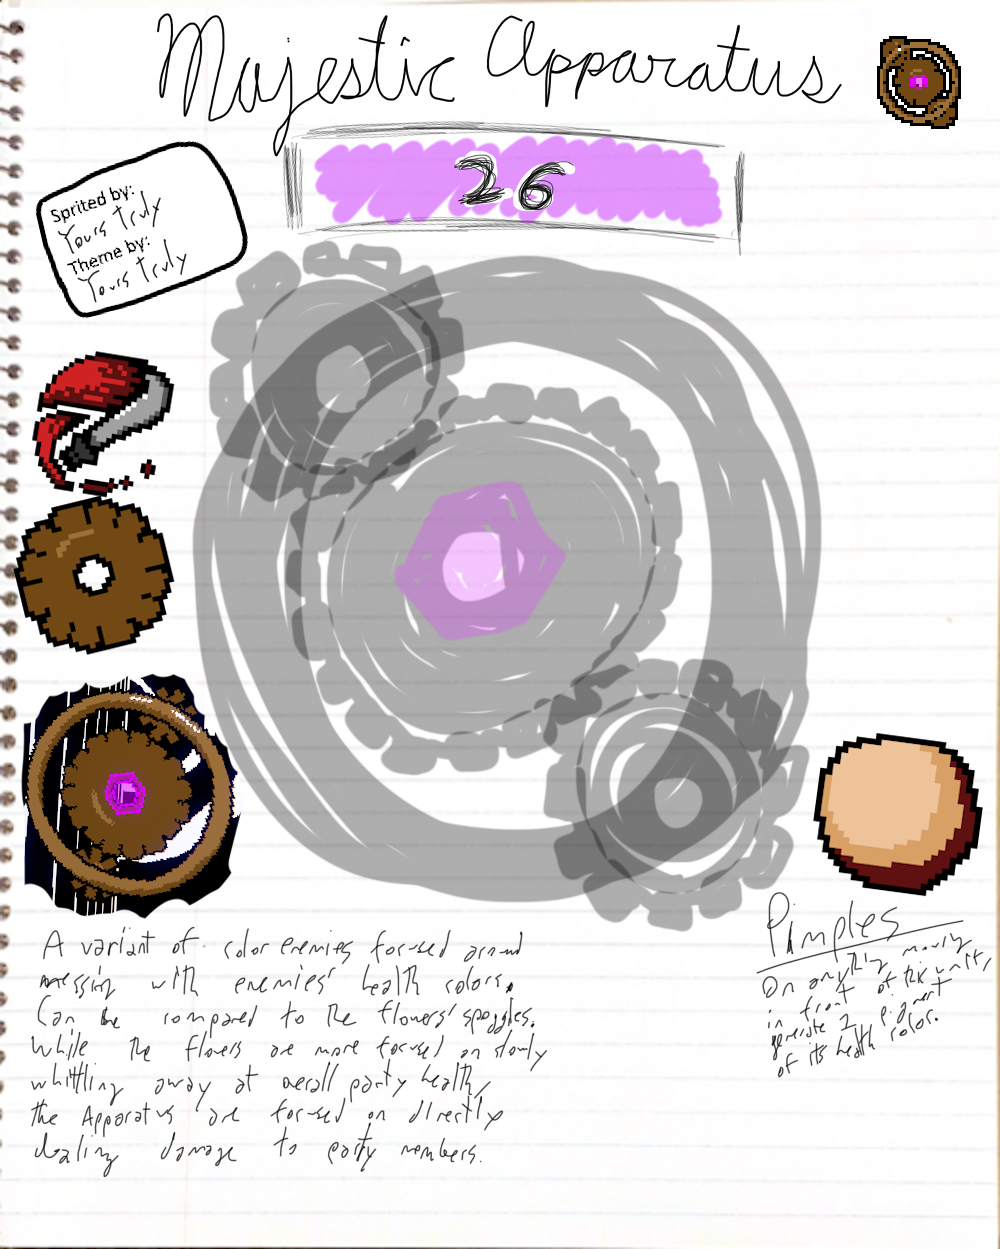 Majestic Apparatus
26
Sprited by:
Yours Truly
Theme by:
Yours Truly
A variant of color enemies focused around
messing with enemies' health colors.
Can be compared to the flowers' spoggles.
While the flowers are more focused on slowly
whittling away at overall party health,
the Apparatus are focused on directly
dealing damage to party members.
Pimples
On anything moving
in front of this unit,
generate 2 pigment
of its health color.